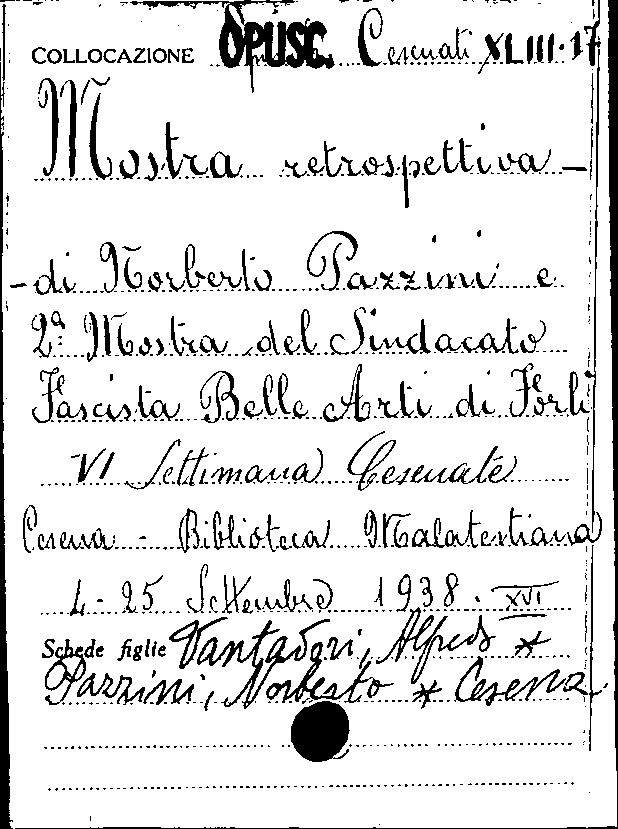 COLLOCAZIONE OPUSC. Cesenati XLIII·17
Mostra retrospettiva -
- di Norberto Pazzini e
2ª Mostra del Sindacato
Fascista Belle Arti di Forlì
VI Settimana Cesenate
Cesena - Biblioteca Malatestiana
4 - 25 Settembre 1938 - XVI
Schede figlie Vantadori, Alfredo *
Pazzini, Norberto * Cesena